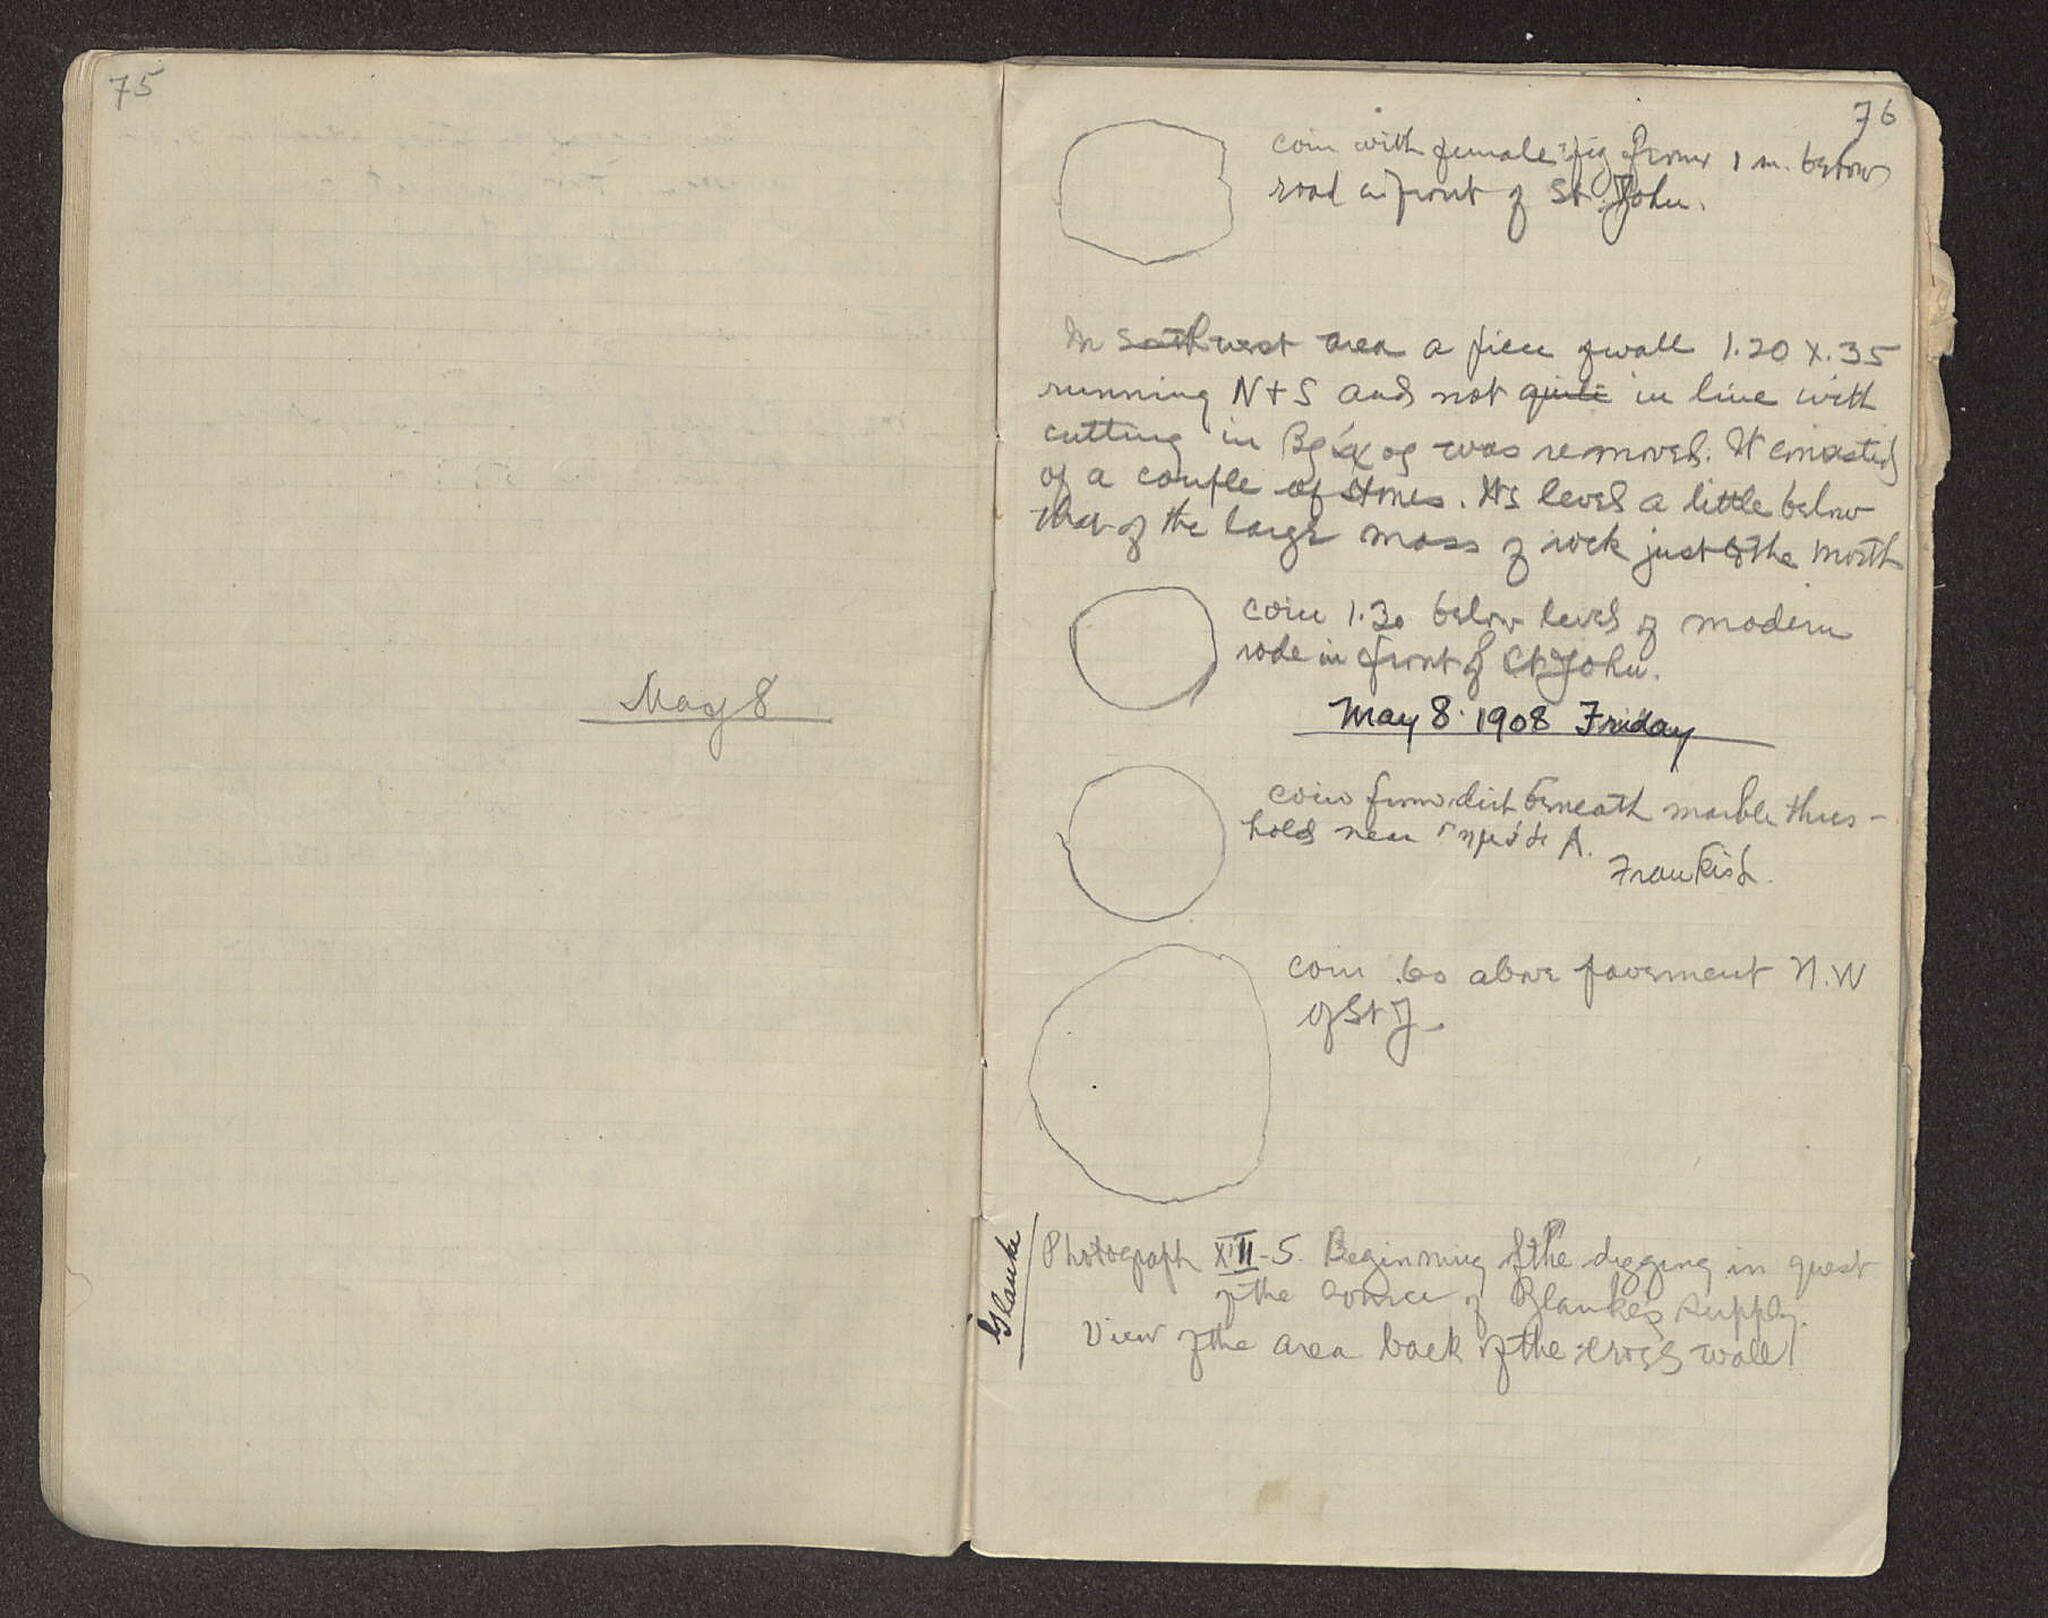 75
May 8
76
coin with female fig from 1 m. below
road in front of St. John.
In Southwest area a piece of wall 1.20 x .35
running N + S and not quite in line with
cutting in was removed. It consisted
of a couple of stones. Its level a little below
that of the large mass of rock just to the north
coin 1.30 below level of modern
rode in front of St John.
May 8. 1908 Friday
coin from dirt beneath marble thres-
hold near A.
Frankish.
coin .60 above pavement N.W
of St J.
Glauke
Photograph XIII-5. Beginning of the digging in quest
of the source of Glauke's supply.
View of the area back of the cross wall